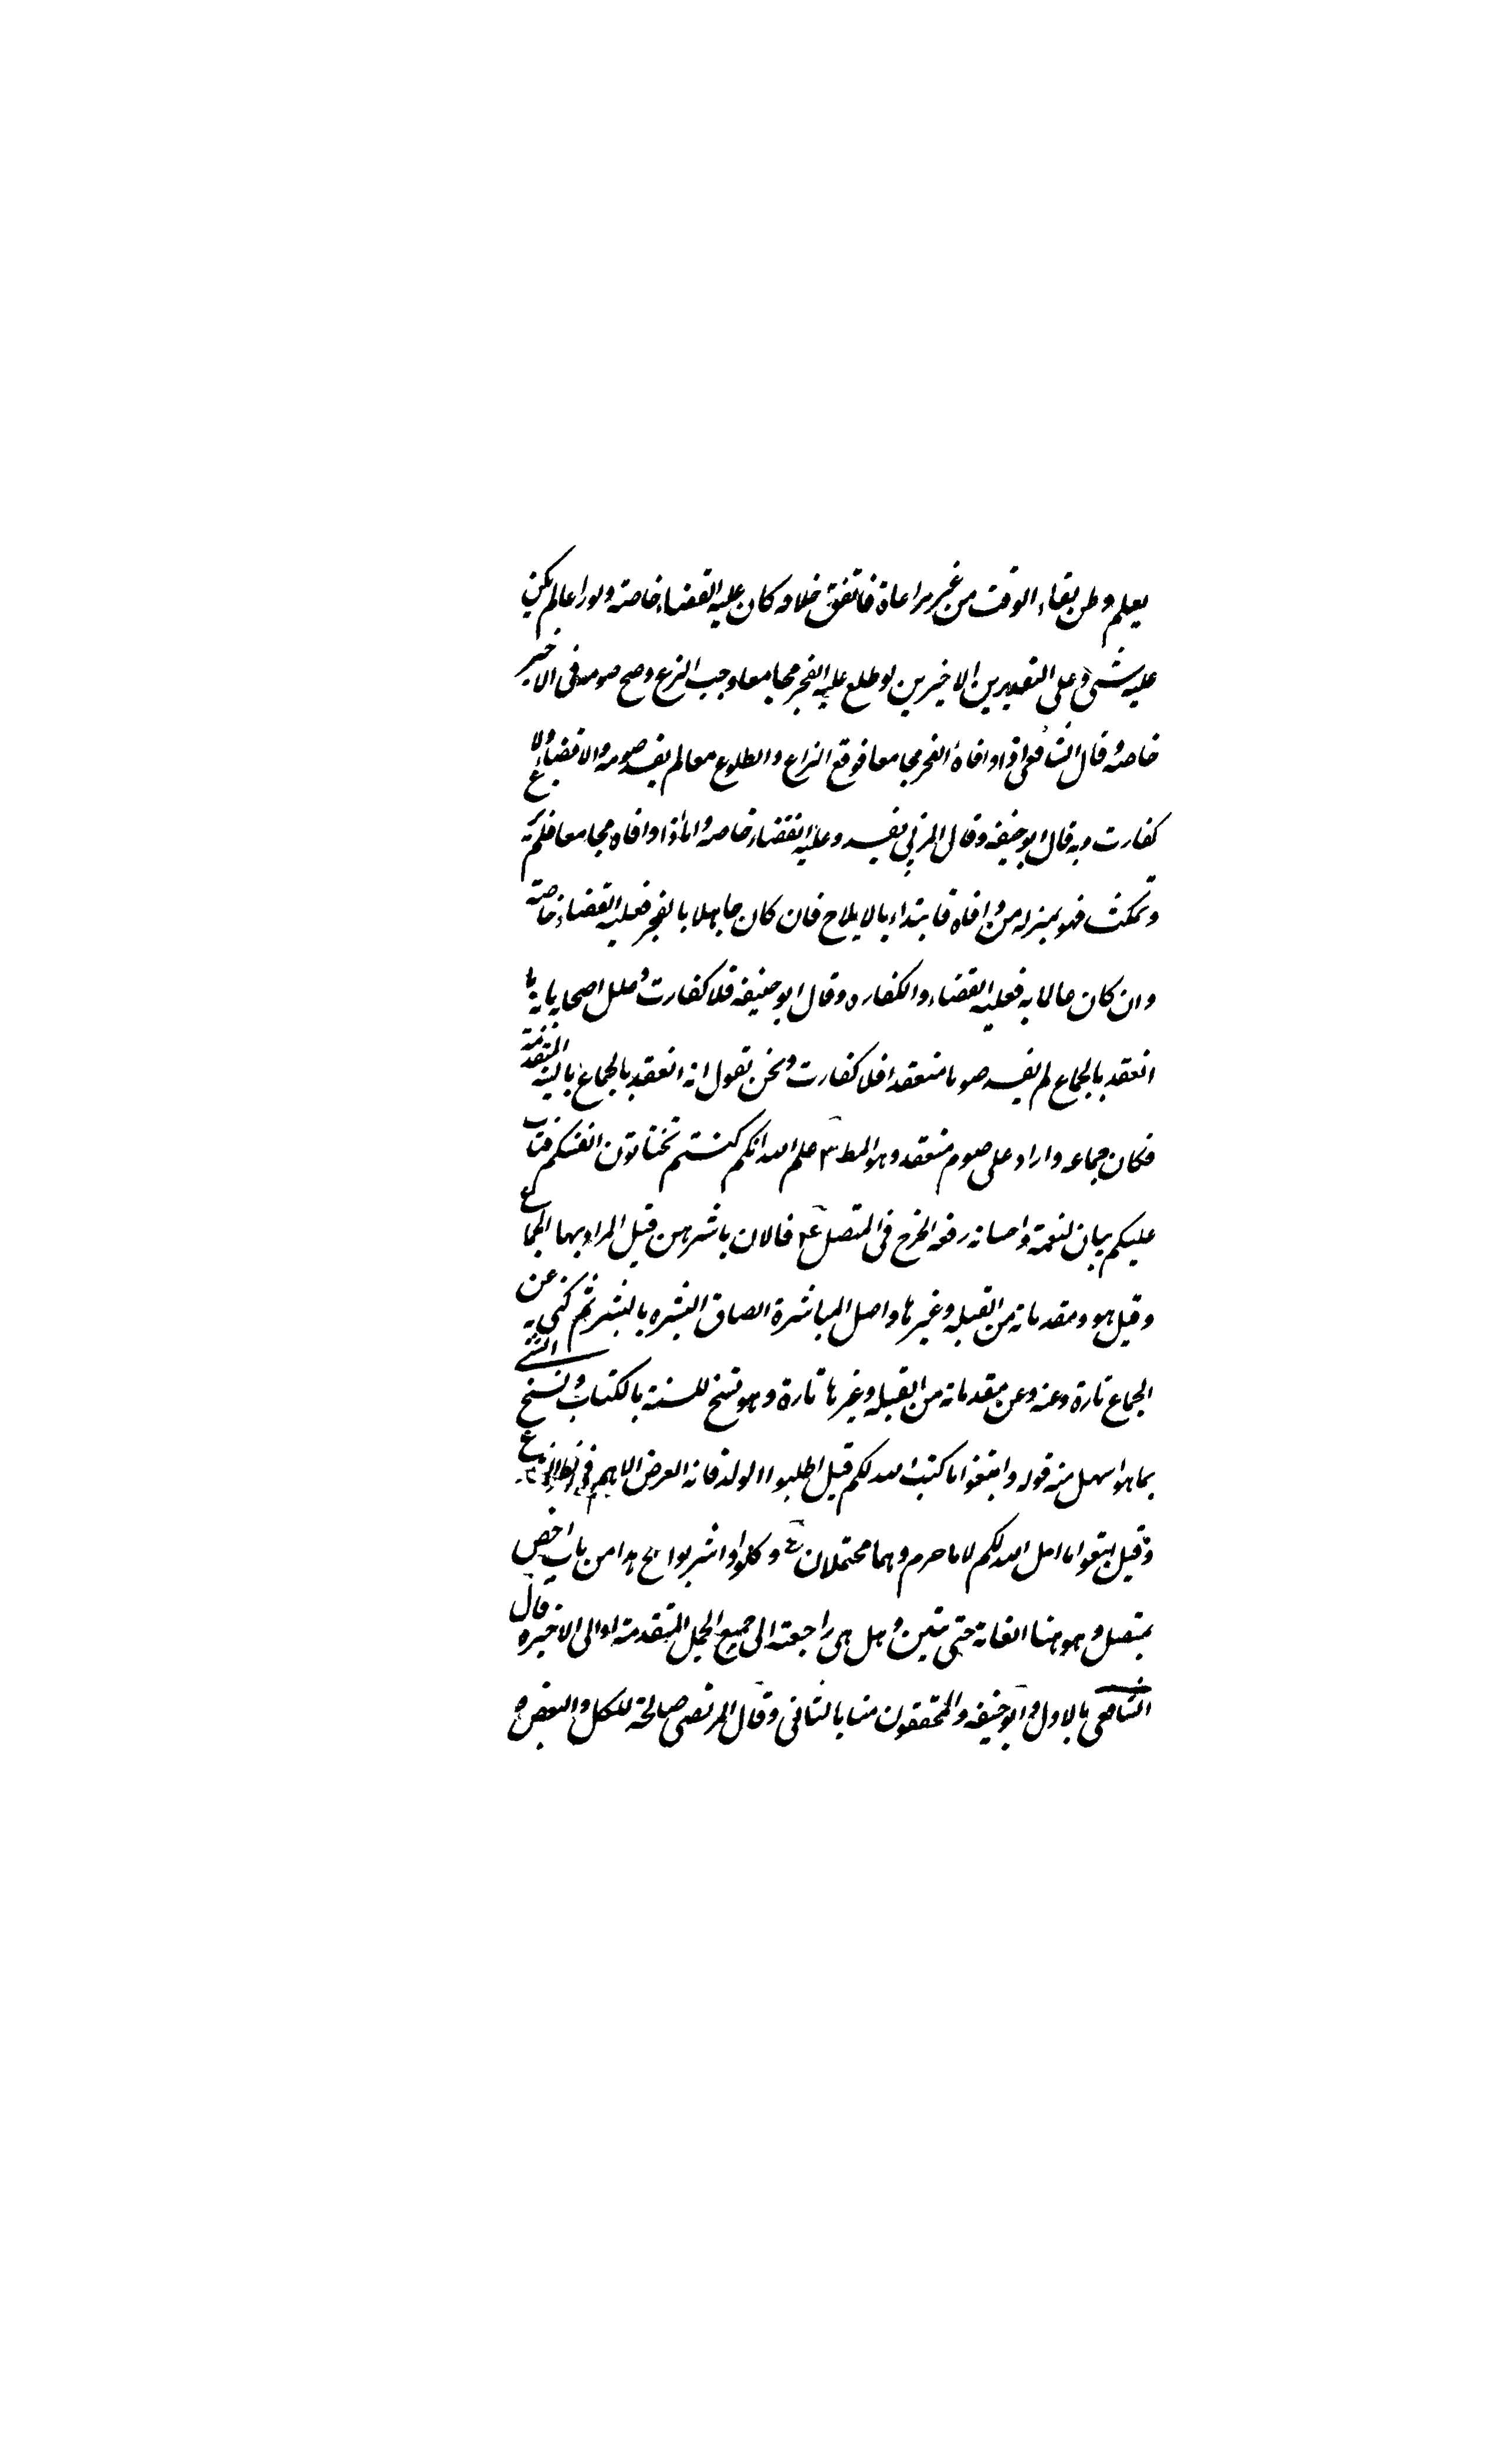 يعلم وظن بقاء الوقت من غير مراعاة فاتفق خلافه كان عليه القضاء خاصة ولو راعا لم يكن
عليه شئ وعلى التقديرين الاخيرين لو طلع عليه الفجر مجامعا وجب النزع وصح صومه فى الاخير
خاصة وقال الشافعى اذا وافاه الفجر مجامعا فوقع النزاع والطلوع معا لم يفسد صومه والا قضاء ولا
كفارت وبه قال ابو حنيفه وقال المزنى يفسد وعليه القضاء خاصه واما اذا وافاه مجامعا فلم
وتمكث فهو بمنزله من وافاه فابتداء بالايلاج فان كان جاهلا بالفجر فعليه القضاء خاصة
وان كان عالما به فعليه القضاء والكفاره وقال ابو حنيفه فلا كفارت وعلل اصحابه بانه ما
انعقد بالجماع لم يفسد صوما منعقدا فلا كفارت ونحن نقول انه انعقد بالجماع بالنية المتقدمة
فكان جماعه واراد على صوم منعقد وهو المط ٣ علم الله انكم كنتم تختانون انفسكم فتاب
عليكم بيان لنعمة واحسانه رفعه الحرج فى المتصل ٤ فالان باشروهن قيل المراد بها الجماع
وقيل هو ومقدماته من القبله وغيرها واصل المباشرة الصاق البشره بالبشره ثم كنى به عن
الجماع تارة وعنه وعن مقدماته من القبله وغيرها تارة وهو نسخ للسنة بالكتاب ونسخ الشئ
بما هو اسهل منه قوله وابتغوا ما كتب الله لكم قيل اطلبوا الولد فانه الغرض الاهم فى
وقيل ابتغوا ما احل الله لكم لا ما حرم وهما محتملان ٤ وكلوا واشربوا الخ هذا من باب اخص
بمتصل وهو هنا الغاية حتى يتبين وهل هى راجعته الى جميع الجمل المتقدمته او الى الاخيره قال
الشافعى بالاول وابو حنيفه والمحققون منا بالثانى وقال المرتضى صالحة للكل والبعض و